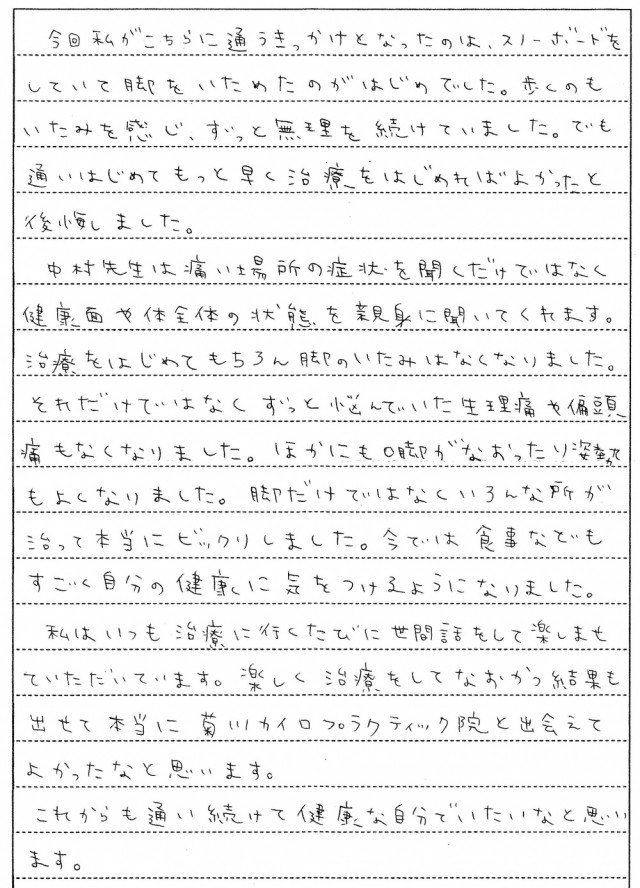 今回私がこちらに通うきっかけとなったのは、スノーボードを
していて脚をいためたのがはじめでした。歩くのも
いたみを感じ、ずっと無理を続けていました。でも
通いはじめてもっと早く治療をはじめればよかったと
後悔しました。
中村先生は痛い場所の症状を聞くだけではなく
健康面や体全体の状態を親身に聞いてくれます。
治療をはじめてもちろん脚のいたみはなくなりました。
それだけではなくずっと悩んでいた生理痛や偏頭
痛もなくなりました。ほかにもO脚がなおったり姿勢
もよくなりました。脚だけではなくいろんな所が
治って本当にビックリしました。今では食事なでも
すごく自分の健康に気をつけるようになりました。
私はいつも治療に行くたびに世間話をして楽しませ
ていただいています。楽しく治療をしてなおかつ結果も
出せて本当に菊川カイロプラクティック院と出会えて
よかったなと思います。
これからも通い続けて健康な自分でいたいなと思い
ます。